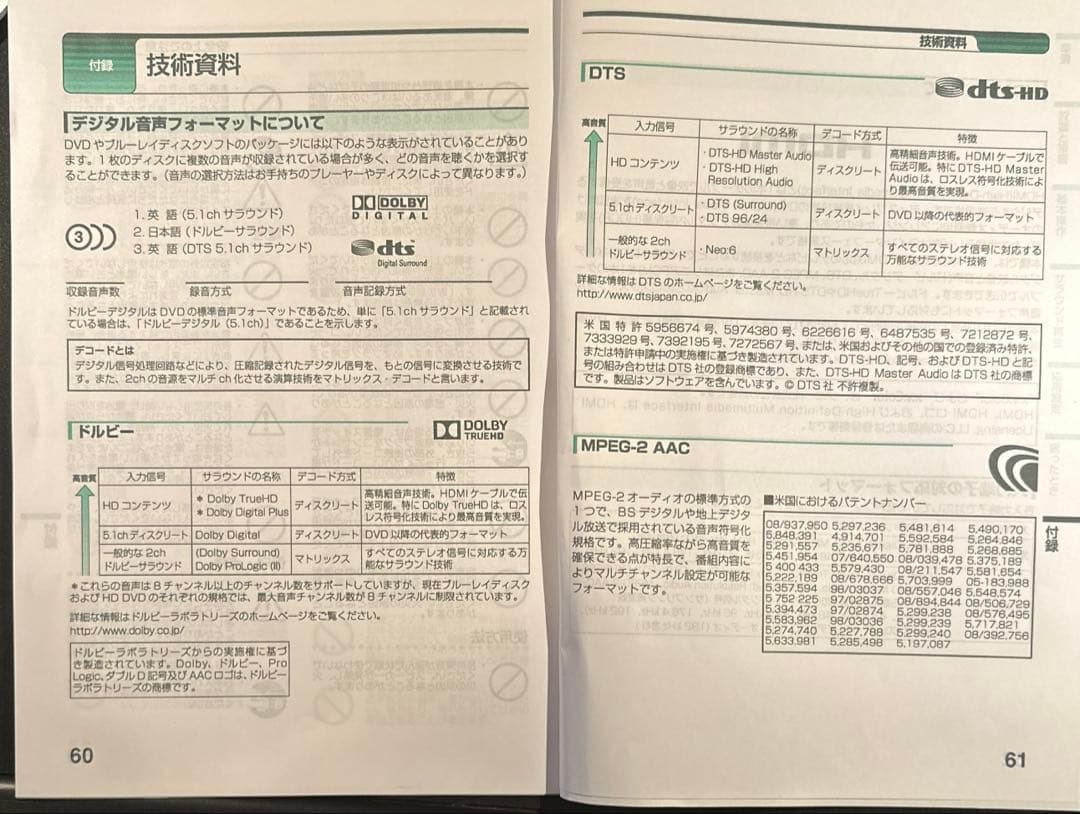 付録
技術資料
デジタル音声フォーマットについて
DVDやブルーレイディスクソフトのパッケージには以下のような表示がされていることがあり
ます。1枚のディスクに複数の音声が収録されている場合が多く、どの音声を聴くかを選択す
ることができます。(音声の選択方法はお手持ちのプレーヤーやディスクによって異なります。)
3
1. 英 語 (5.1chサラウンド)
2. 日本語 (ドルビーサラウンド)
3. 英 語 (DTS 5.1chサラウンド)
DOLBY
DIGITAL
dts
Digital Surround
収録音声数 録音方式 音声記録方式
ドルビーデジタルはDVDの標準音声フォーマットであるため、単に「5.1chサラウンド」と記載され
ている場合は、「ドルビーデジタル (5.1ch)」であることを示します。
デコードとは
デジタル信号処理回路などにより、圧縮記録されたデジタル信号を、もとの信号に変換させる技術で
す。また、2chの音源をマルチch化させる演算技術をマトリックス・デコードと言います。
ドルビー
DOLBY
TRUEHD
高音質
入力信号 サラウンドの名称 デコード方式 特徴
HDコンテンツ
* Dolby TrueHD
* Dolby Digital Plus
ディスクリート
高精細音声技術。HDMIケーブルで伝
送可能。特にDolby TrueHDは、ロス
レス符号化技術により最高音質を実現。
5.1chディスクリート Dolby Digital ディスクリート DVD以降の代表的フォーマット
一般的な2ch
ドルビーサラウンド
(Dolby Surround)
Dolby ProLogic (II)
マトリックス
すべてのステレオ信号に対応する万
能なサラウンド技術
*これらの音声は8チャンネル以上のチャンネル数をサポートしていますが、現在ブルーレイディスク
およびHD DVDのそれぞれの規格では、最大音声チャンネル数が8チャンネルに制限されています。
詳細な情報はドルビーラボラトリーズのホームページをご覧ください。
http://www.dolby.co.jp/
ドルビーラボラトリーズからの実施権に基づ
き製造されています。Dolby、ドルビー、Pro
Logic、ダブルD記号及びAACロゴは、ドルビー
ラボラトリーズの商標です。
60
技術資料
DTS
dts-HD
高音質
入力信号 サラウンドの名称 デコード方式 特徴
HDコンテンツ
・DTS-HD Master Audio
・DTS-HD High
Resolution Audio
ディスクリート
高精細音声技術。HDMIケーブルで
伝送可能。特にDTS-HD Master
Audioは、ロスレス符号化技術によ
り最高音質を実現。
5.1chディスクリート
・DTS (Surround)
・DTS 96/24
ディスクリート DVD以降の代表的フォーマット
一般的な2ch
ドルビーサラウンド
・Neo:6
マトリックス
すべてのステレオ信号に対応する
万能なサラウンド技術
詳細な情報はDTSのホームページをご覧ください。
http://www.dtsjapan.co.jp/
米国特許5956674号、5974380号、6226616号、6487535号、7212872号、
7333929号、7392195号、7272567号、または、米国およびその他の国での登録済み特許、
または特許申請中の実施権に基づき製造されています。DTS-HD、記号、およびDTS-HDと記
号の組み合わせはDTS社の登録商標であり、また、DTS-HD Master AudioはDTS社の商標
です。製品はソフトウェアを含んでいます。© DTS社 不許複製。
MPEG-2 AAC
MPEG-2オーディオの標準方式の
1つで、BSデジタルや地上デジタ
ル放送で採用されている音声符号化
規格です。高圧縮率ながら高音質を
確保できる点が特長で、番組内容に
よりマルチチャンネル設定が可能な
フォーマットです。
■米国におけるパテントナンバー
08/937,950 5,297,236 5,481,614 5,490,170
5,848,391 4,914,701 5,592,584 5,264,846
5,291,557 5,235,671 5,781,888 5,268,685
5,451,954 07/640,550 08/039,478 5,375,189
5 400 433 5,579,430 08/211,547 5,581,654
5,222,189 08/678,666 5,703,999 05-183,988
5,357,594 98/03037 08/557,046 5,548,574
5 752 225 97/02875 08/894,844 08/506,729
5,394,473 97/02874 5,299,238 08/576,495
5,583,962 98/03036 5,299,239 5,717,821
5,274,740 5,227,788 5,299,240 08/392,756
5,633,981 5,285,498 5,197,087
付録
61